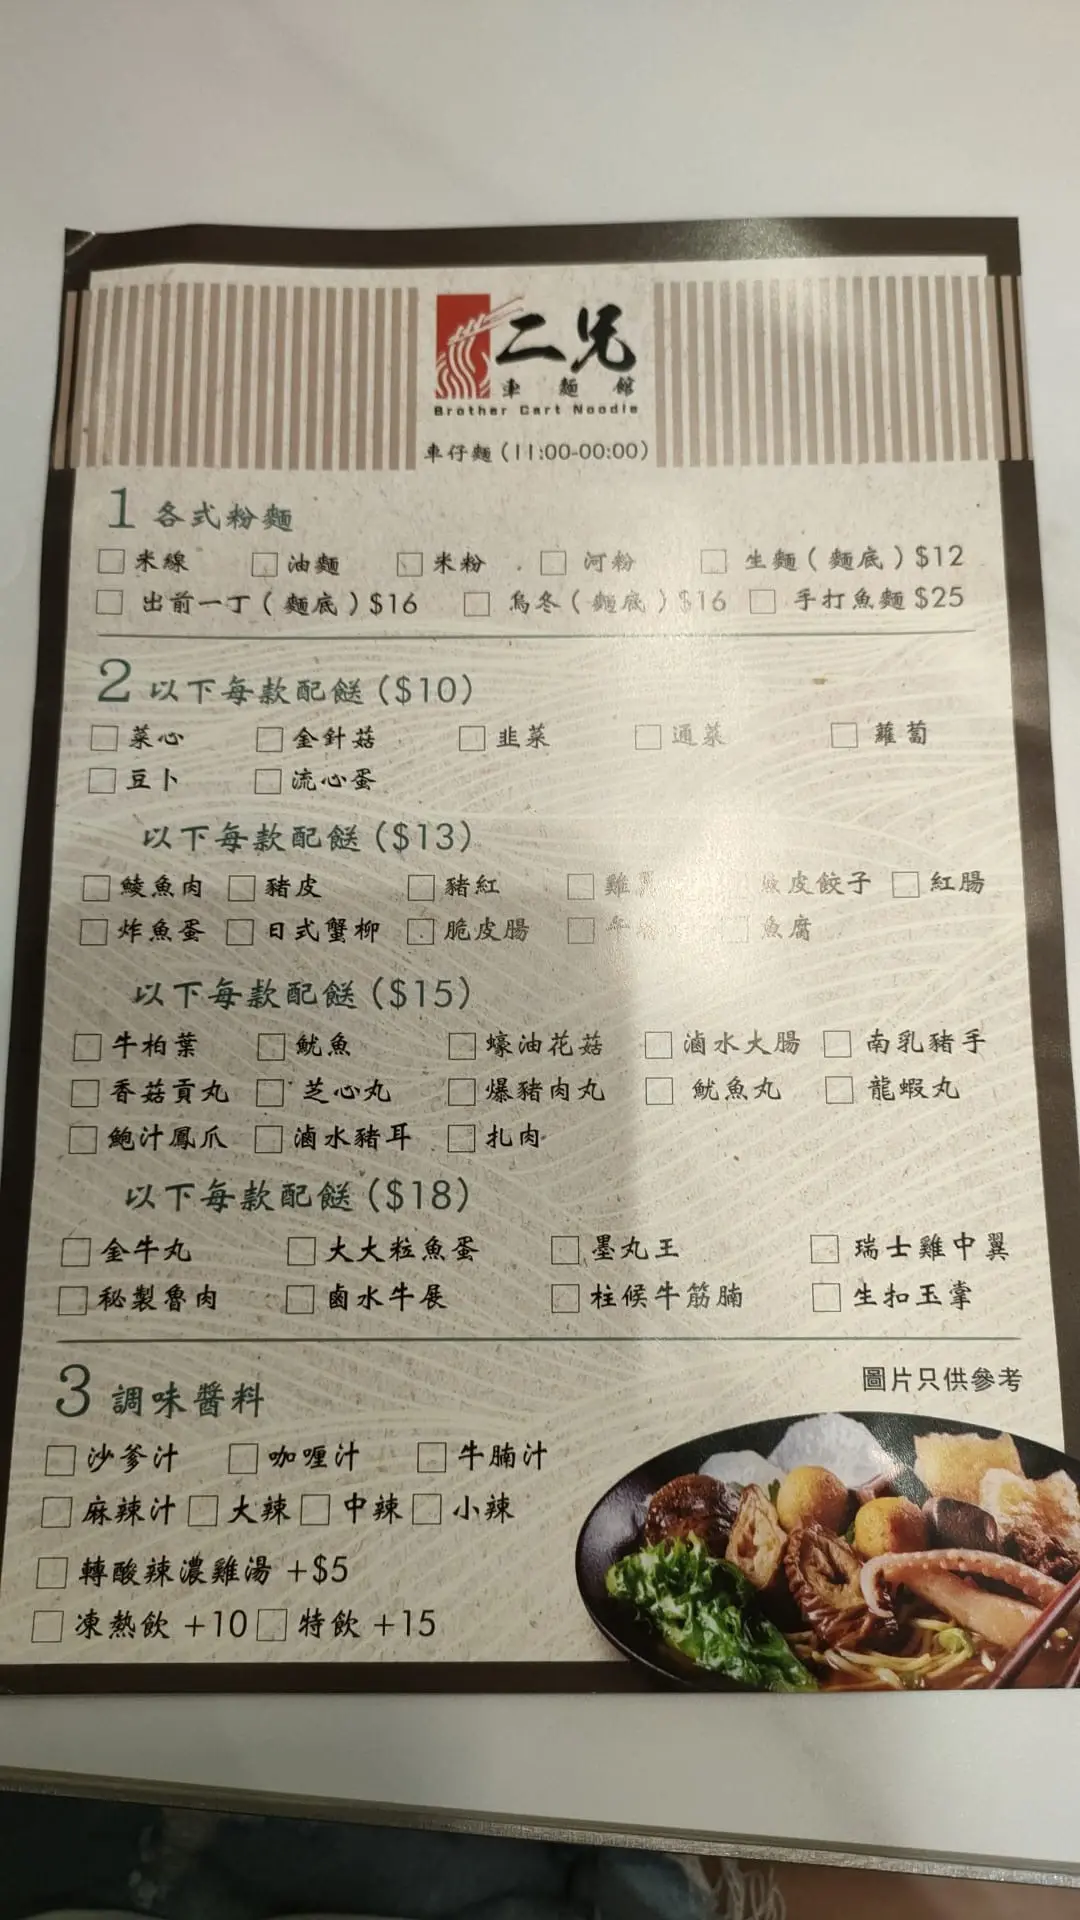 二兄
車麵館
Brother Cart Noodle
車仔麵(11:00-00:00)
1 各式粉麵
米線 油麵 米粉 河粉 生麵(麵底)$12
出前一丁(麵底)$16 烏冬(麵底)$16 手打魚麵 $25
2 以下每款配餸($10)
菜心 金針菇 韭菜 通菜 蘿蔔
豆卜 流心蛋
以下每款配餸($13)
鯪魚肉 豬皮 豬紅 雞 皮餃子 紅腸
炸魚蛋 日式蟹柳 脆皮腸 魚腐
以下每款配餸($15)
牛柏葉 魷魚 蠔油花菇 滷水大腸 南乳豬手
香菇貢丸 芝心丸 爆豬肉丸 魷魚丸 龍蝦丸
鮑汁鳳爪 滷水豬耳 扎肉
以下每款配餸($18)
金牛丸 大大粒魚蛋 墨丸王 瑞士雞中翼
秘製魯肉 鹵水牛展 柱候牛筋腩 生扣玉掌
3 調味醬料
圖片只供參考
沙爹汁 咖喱汁 牛腩汁
麻辣汁 大辣 中辣 小辣
轉酸辣濃雞湯 +$5
凍熱飲 +10 特飲 +15